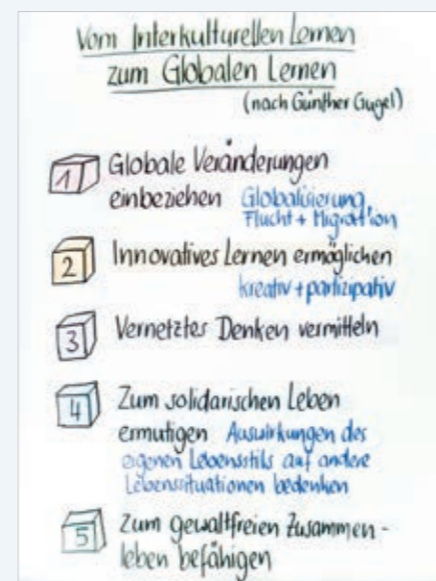 Vom Interkulturellen Lernen
zum Globalen Lernen
(nach Günther Gugel)
1 Globale Veränderungen
einbeziehen Globalisierung,
Flucht + Migration
2 Innovatives Lernen ermöglichen
kreativ + partizipativ
3 Vernetztes Denken vermitteln
4 Zum solidarischen Leben
ermutigen Auswirkungen des
eigenen Lebensstils auf andere
Lebenssituationen bedenken
5 Zum gewaltfreien Zusammen-
leben befähigen